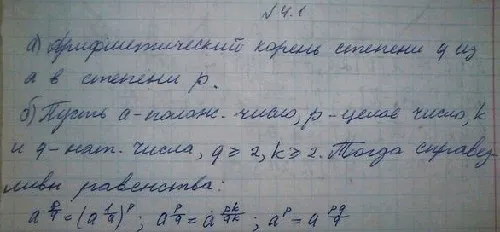 № 4.1
а) Арифметический корень степени q из
а в степени p.
б) Пусть а - полож. число, p - целое число, k
и q - нат. числа, q ≥ 2, k ≥ 2. Тогда справед
ливы равенства:
a^(p/q) = (a^(1/q))^p ; a^(p/q) = a^(pk/qk) ; a^p = a^(pq/q)